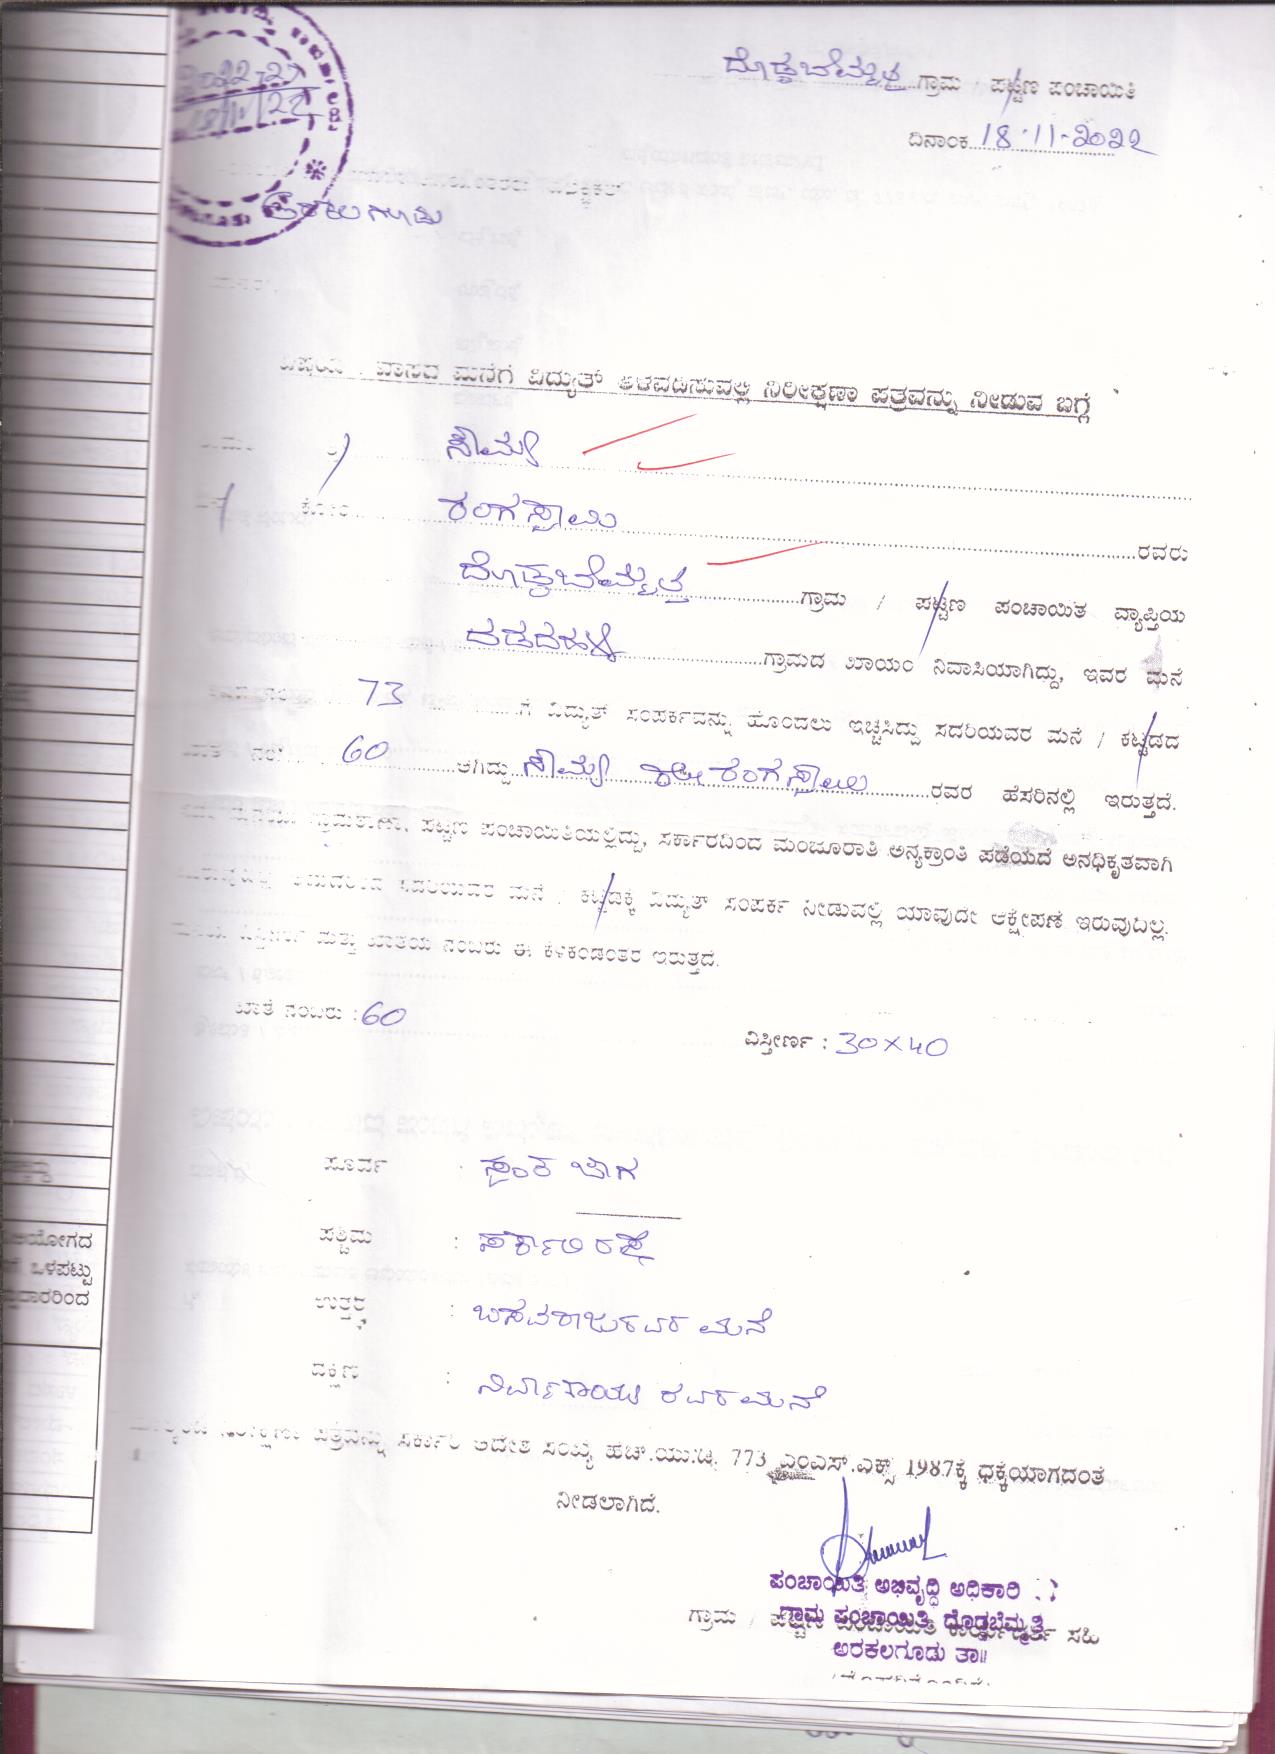 ದೊಡ್ಡಬೆಮ್ಮತ್ತಿ ಗ್ರಾಮ / ಪಟ್ಟಣ ಪಂಚಾಯಿತಿ
2022-23
18/11/22
ದಿನಾಂಕ 18-11-2022
ಅರಕಲಗೂಡು
ವಿಷಯ : ವಾಸದ ಮನೆಗೆ ವಿದ್ಯುತ್ ಅಳವಡಿಸುವಲ್ಲಿ ನಿರೀಕ್ಷಣಾ ಪತ್ರವನ್ನು ನೀಡುವ ಬಗ್ಗೆ
ಸೌಮ್ಯ
ಕೋಂ ರಂಗಸ್ವಾಮಿ ರವರು
ದೊಡ್ಡಬೆಮ್ಮತ್ತಿ ಗ್ರಾಮ / ಪಟ್ಟಣ ಪಂಚಾಯಿತ ವ್ಯಾಪ್ತಿಯ
ವಡದಹಳ್ಳಿ ಗ್ರಾಮದ ಖಾಯಂ ನಿವಾಸಿಯಾಗಿದ್ದು, ಇವರ ಮನೆ
73 ಗೆ ವಿದ್ಯುತ್ ಸಂಪರ್ಕವನ್ನು ಹೊಂದಲು ಇಚ್ಚಿಸಿದ್ದು ಸದರಿಯವರ ಮನೆ / ಕಟ್ಟಡದ
60 ಆಗಿದ್ದು ಸೌಮ್ಯ ಕೋಂ ರಂಗಸ್ವಾಮಿ ರವರ ಹೆಸರಿನಲ್ಲಿ ಇರುತ್ತದೆ.
ಗ್ರಾಮಠಾಣಾ, ಪಟ್ಟಣ ಪಂಚಾಯಿತಿಯಲ್ಲಿದ್ದು, ಸರ್ಕಾರದಿಂದ ಮಂಜೂರಾತಿ ಅನ್ಯಕ್ರಾಂತಿ ಪಡೆಯದೆ ಅನಧಿಕೃತವಾಗಿ
ಸದರಿಯವರ ಮನೆ / ಕಟ್ಟಡಕ್ಕೆ ವಿದ್ಯುತ್ ಸಂಪರ್ಕ ನೀಡುವಲ್ಲಿ ಯಾವುದೇ ಆಕ್ಷೇಪಣೆ ಇರುವುದಿಲ್ಲ.
ವಿಸ್ತೀರ್ಣ ಮತ್ತು ಖಾತೆಯ ನಂಬರು ಈ ಕೆಳಕಂಡಂತರ ಇರುತ್ತದೆ.
ಖಾತೆ ನಂಬರು : 60
ವಿಸ್ತೀರ್ಣ : 30×40
ಪೂರ್ವ : ಸ್ವಂತ ಜಾಗ
ಪಶ್ಚಿಮ : ಸರ್ಕಾರಿ ರಸ್ತೆ
ಉತ್ತರ : ಬಸವರಾಜುರವರ ಮನೆ
ದಕ್ಷಿಣ : ನಿರ್ವಾಣಯ್ಯ ರವರ ಮನೆ
ನಿರೀಕ್ಷಣಾ ಪತ್ರವನ್ನು ಸರ್ಕಾರಿ ಆದೇಶ ಸಂಖ್ಯೆ ಹೆಚ್.ಯು.ಡಿ. 773 ಎಂಎಸ್.ಎಕ್ಸ್ 1987ಕ್ಕೆ ಧಕ್ಕೆಯಾಗದಂತೆ
ನೀಡಲಾಗಿದೆ.
ಪಂಚಾಯಿತಿ ಅಭಿವೃದ್ಧಿ ಅಧಿಕಾರಿ
ಗ್ರಾಮ ಪಂಚಾಯಿತಿ, ದೊಡ್ಡಬೆಮ್ಮತ್ತಿ
ಗ್ರಾಮ / ಪಟ್ಟಣ ಪಂಚಾಯಿತಿ ಸಹಿ
ಅರಕಲಗೂಡು ತಾ॥
ಆಯೋಗದ
ಒಳಪಟ್ಟು
ದಾರರಿಂದ